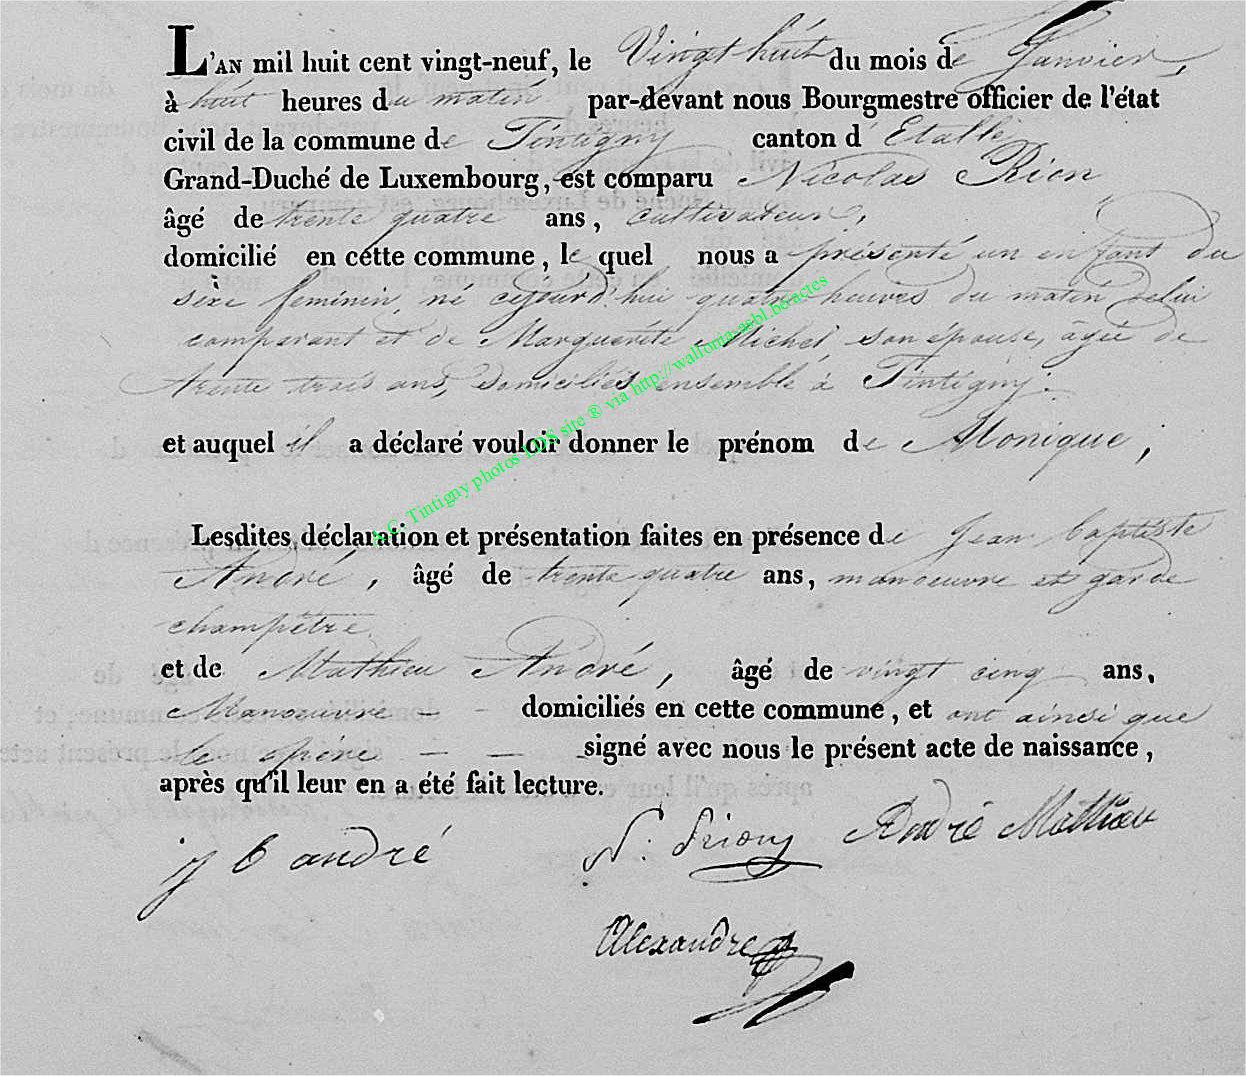 L'AN mil huit cent vingt-neuf, le Vingt huit du mois de Janvier,
à huit heures du matin par-devant nous Bourgmestre officier de l'état
civil de la commune de Tintigny canton d'Etalle
Grand-Duché de Luxembourg, est comparu Nicolas Rion
âgé de trente quatre ans, cultivateur,
domicilié en cette commune, le quel nous a présenté un enfant du
sexe feminin, né cejourd'hui quatre heures du matin de lui
comparant et de Marguerite Michel son épouse, âgée de
trente trois ans, domiciliés ensemble à Tintigny.
et auquel il a déclaré vouloir donner le prénom de Monique,
A.C. Tintigny photos LDS site ® via http://wallonia-asbl.be/actes
Lesdites déclaration et présentation faites en présence de Jean baptiste
André, âgé de trente quatre ans, manoeuvre et garde
champêtre
et de Mathieu André, âgé de vingt cinq ans,
Manoeuvre - - domiciliés en cette commune, et ont ainsi que
le père - - signé avec nous le présent acte de naissance,
après qu'il leur en a été fait lecture.
j b andré N. Riony André Mathieu
Alexandre